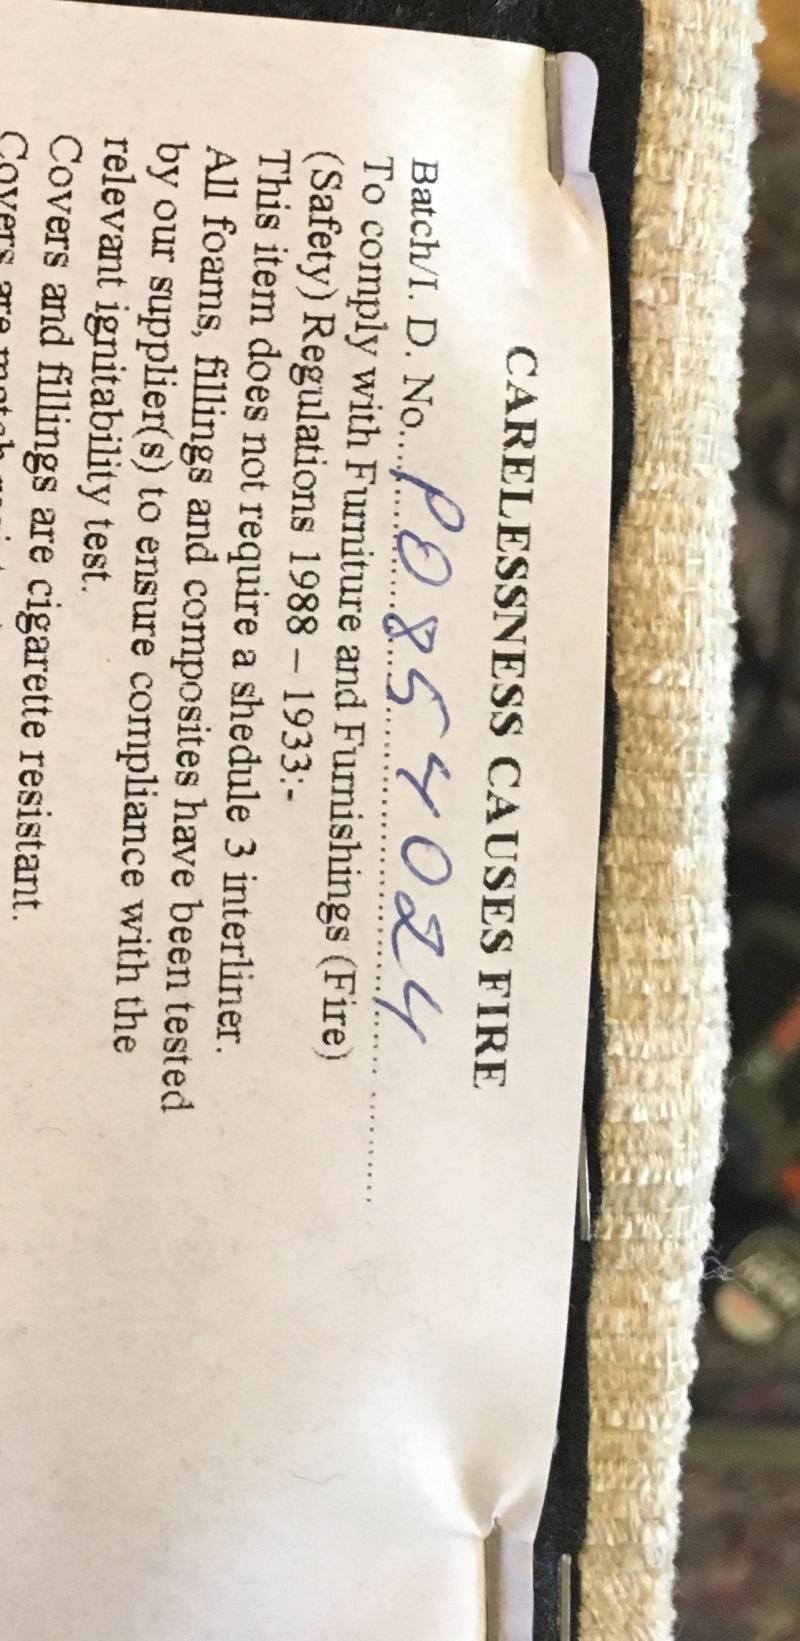 CARELESSNESS CAUSES FIRE
Batch/I. D. No....P0854024..........
To comply with Furniture and Furnishings (Fire)
(Safety) Regulations 1988 – 1933:-
This item does not require a shedule 3 interliner.
All foams, fillings and composites have been tested
by our supplier(s) to ensure compliance with the
relevant ignitability test.
Covers and fillings are cigarette resistant.
Covers are match